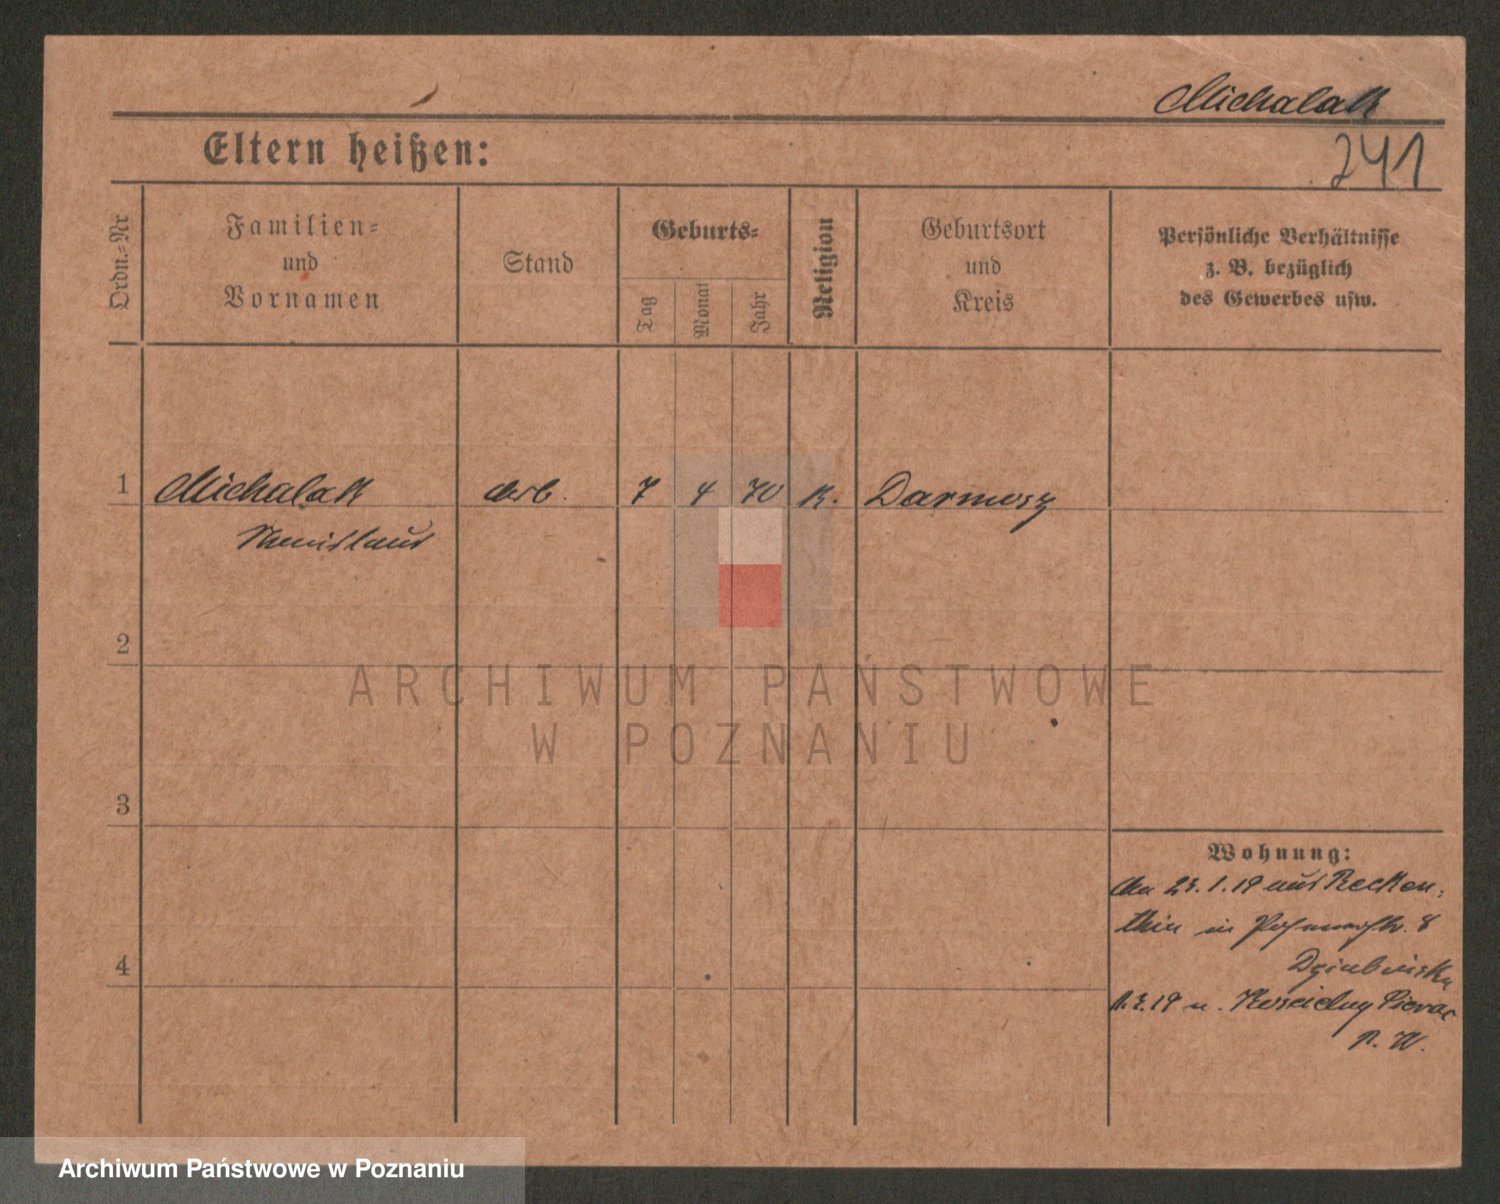 Michalak
Eltern heißen:
241
Ordn.=Nr
Familien=
und
Vornamen
Stand
Geburts=
Tag
Monat
Jahr
Religion
Geburtsort
und
Kreis
Persönliche Verhältnisse
z. B. bezüglich
des Gewerbes usw.
1 Michalak arb. 7 4 70 k. Darmosz
Stanislaus
2
ARCHIWUM PAŃSTWOWE
W POZNANIU
3
Wohnung:
23.1.19 aus Recken-
thin in 8
4
Dziubinski
3.19 n. Koscielny
Archiwum Państwowe w Poznaniu